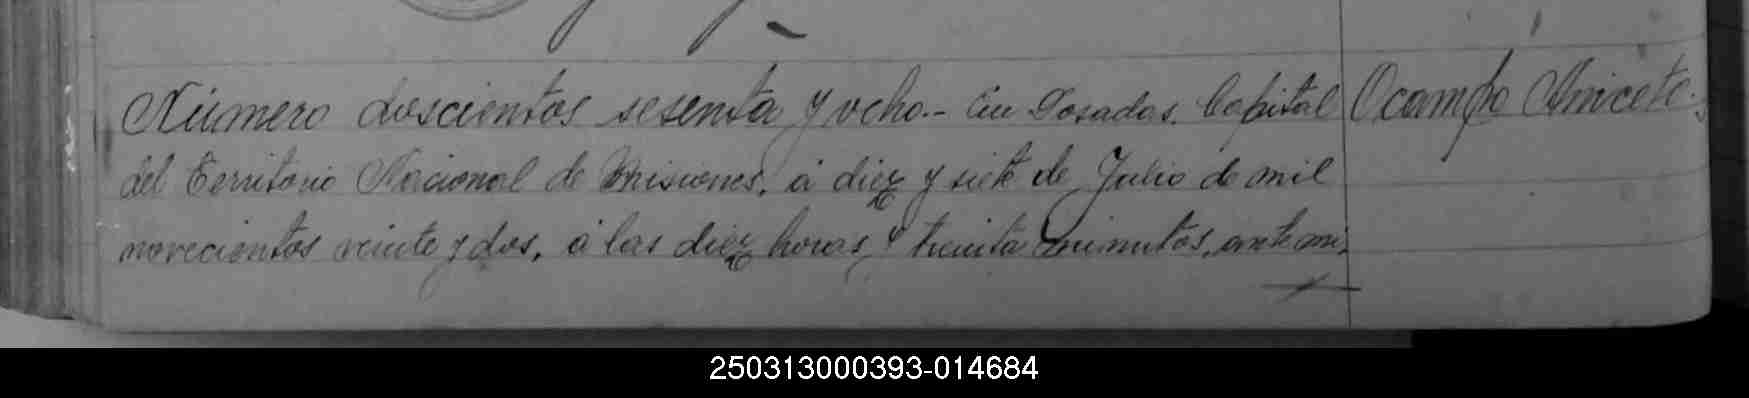 Número doscientos sesenta y ocho.- En Posadas, Capital
Ocampo Aniceto.
del Territorio Nacional de Misiones, á diez y siete de Julio de mil
novecientos veinte y dos, á las diez horas y treinta minutos, ante mi,
250313000393-014684